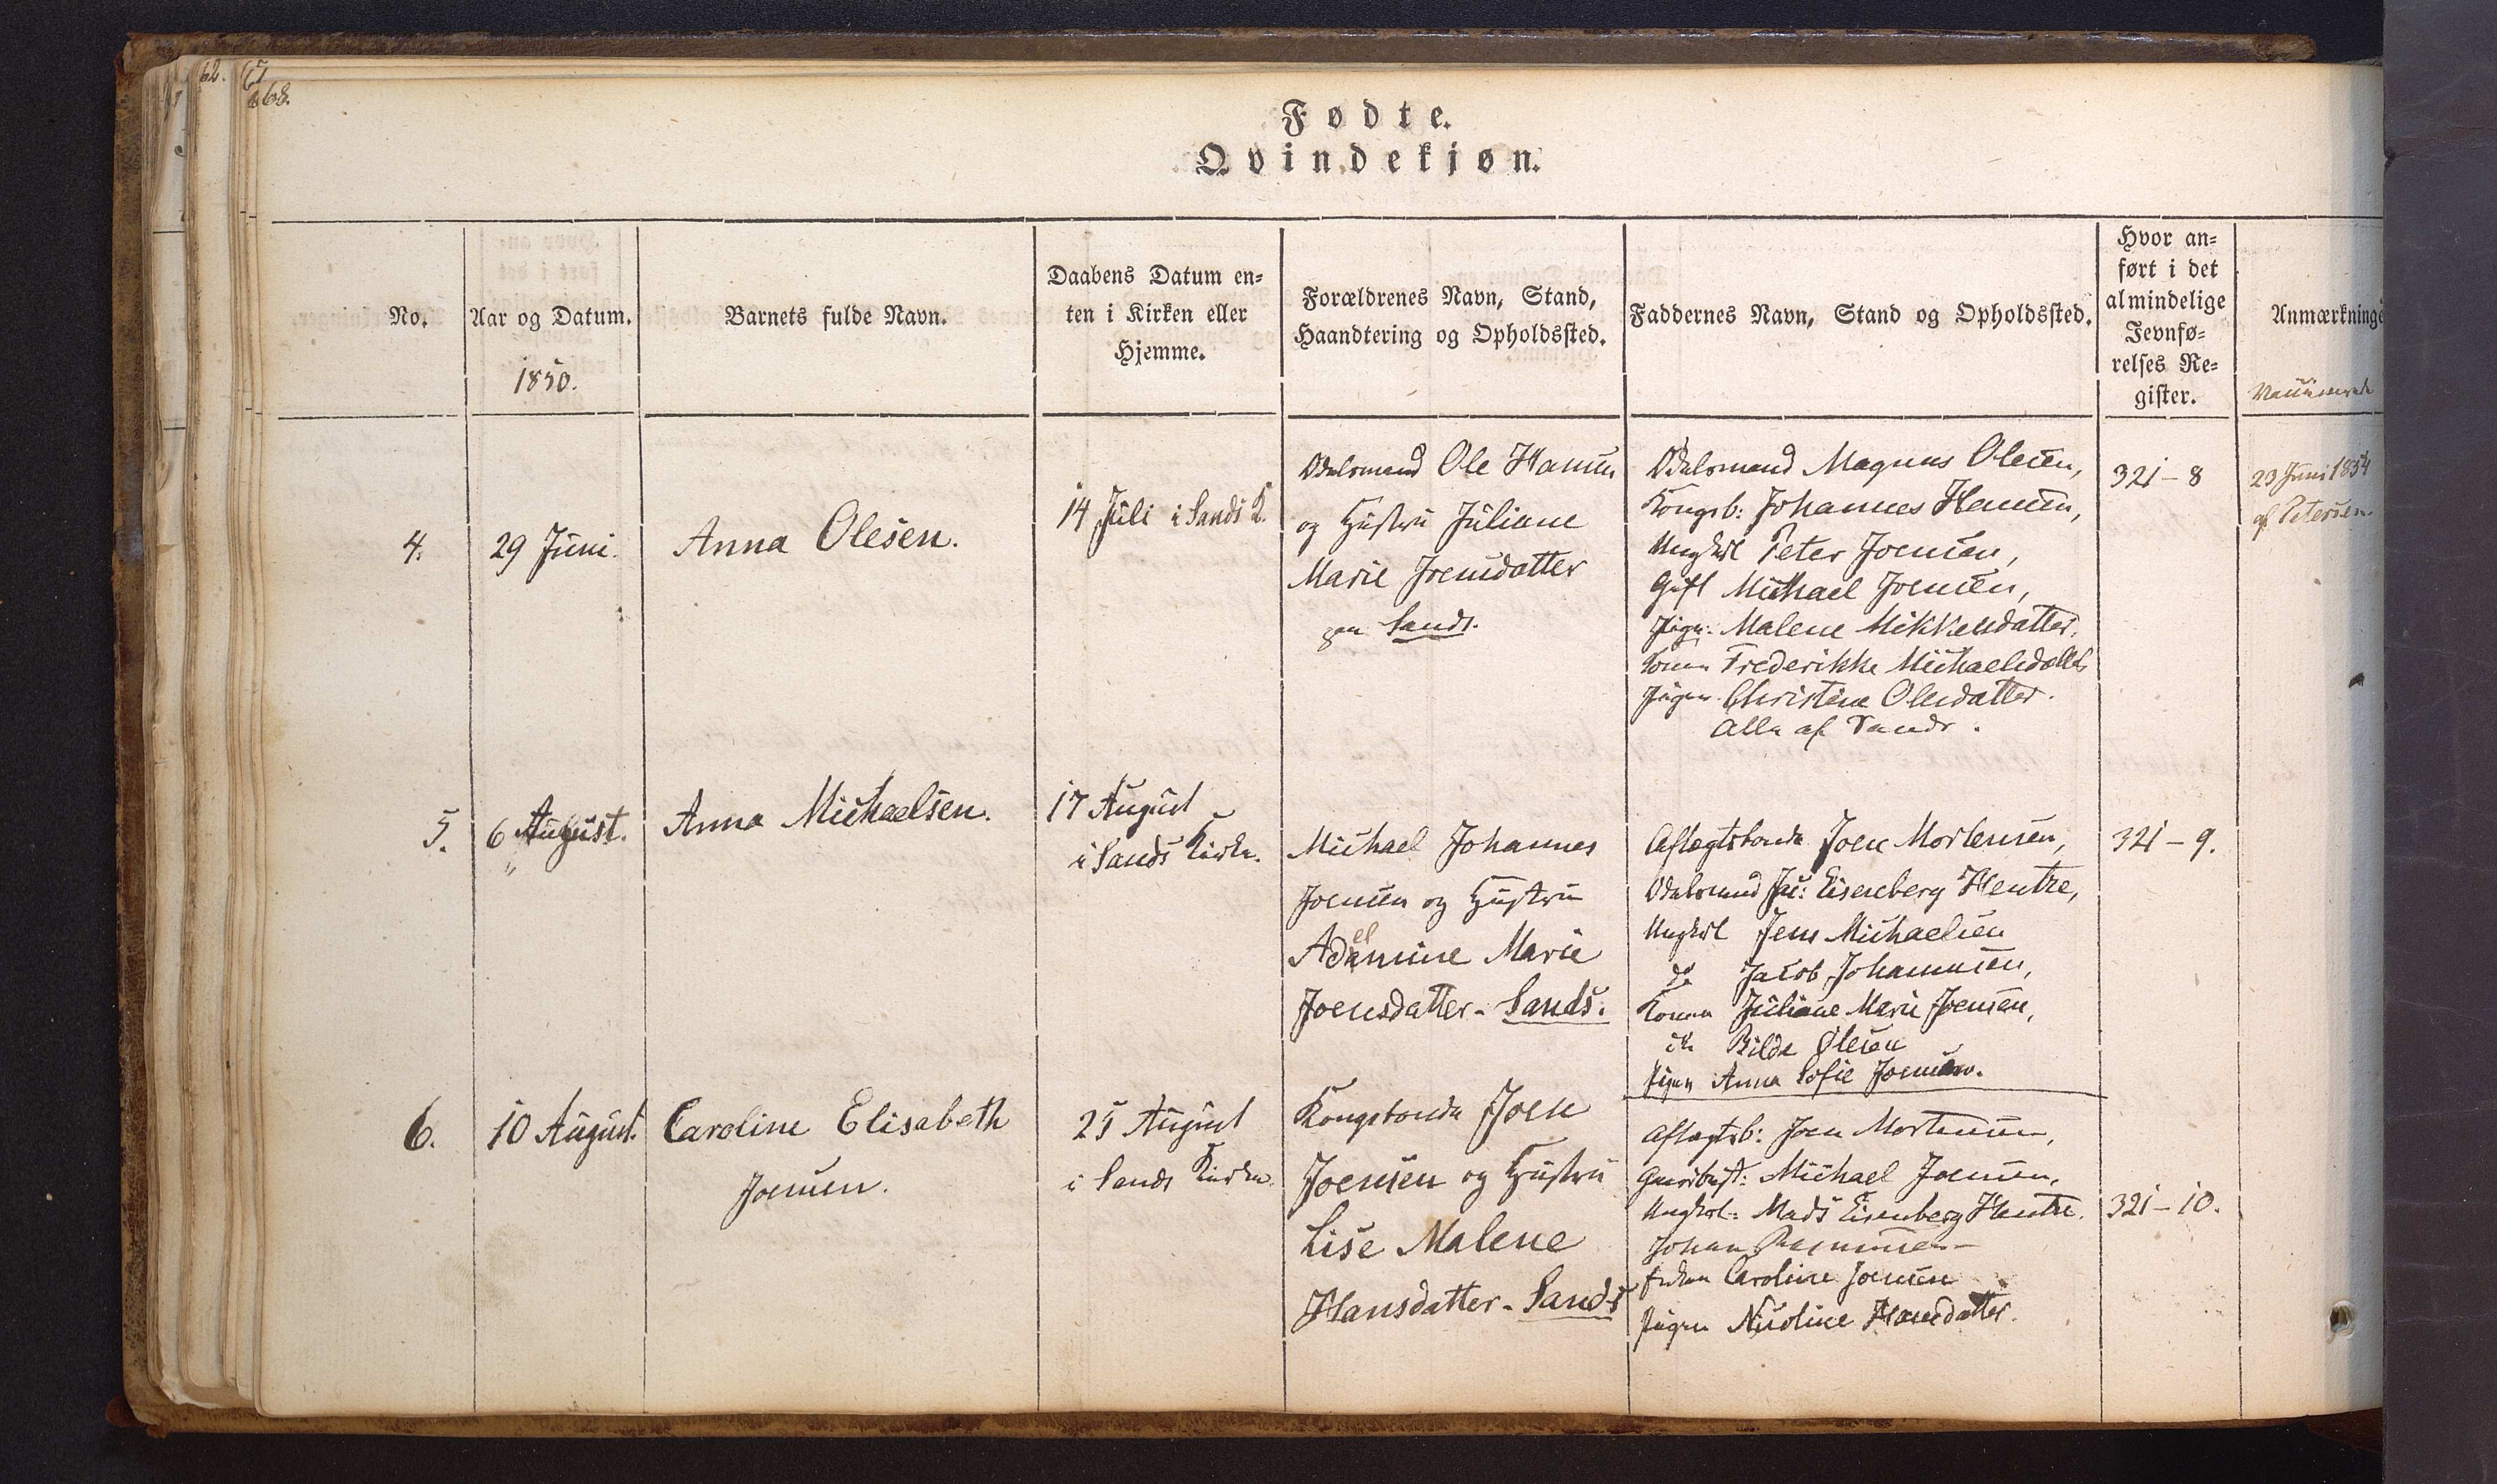 62.
67
68.
Fødte.
Qvindekjøn.
No.
Aar og Datum.
1850.
Barnets fulde Navn.
Daabens Datum en-
ten i Kirken eller
Hjemme.
Forældrenes Navn, Stand,
Haandtering og Opholdssted.
Faddernes Navn, Stand og Opholdssted.
Hvor an-
ført i det
almindelige
Jevnfø-
relses Re-
gister.
Anmærkninge
4.
29 Juni.
Anna Olesen.
14 Juli i Sands K.
Odelsmand Ole Hansen
og Hustru Juliane
Marie Joensdatter
paa Sands.
Odelsmand Magnus Olesen,
Kongsb: Johannes Hansen,
Ungkarl Peter Joensen,
Gift Michael Joensen,
Pigen: Malene Mikkelsdatter,
Konen Frederikke Michaelsdatter
Pigen Christine Olesdatter.
Alle af Sands.
321-8
23 Juni 1854
af Petersen.
5.
6 August.
Anna Michaelsen.
17 August
i Sands Kirke.
Michael Johannes
Joensen og Hustru
Adelmine Marie
Joensdatter - Sands.
Aftægtsbonde Joen Mortensen,
Odelsmand Jac: Eisenberg Hentze,
Ungkarl Jens Michaelsen
do Jacob Johannesen,
Konen Juliane Marie Joensen,
do Bilde Olesen
Pigen Anna Sofie Joensen.
321-9.
6.
10 August.
Caroline Elisabeth
Joensen.
25 August
i Sands Kirke.
Kongsbonde Joen
Joensen og Hustru
Lise Malene
Hansdatter - Sands
Aftægtsb: Joen Mortensen,
Michael Joensen,
Ungkarl: Mads Eisenberg Hentze.
Johan Rasmussen -
Enken Caroline Joensen
Pigen Nicoline Hansdatter.
321-10.